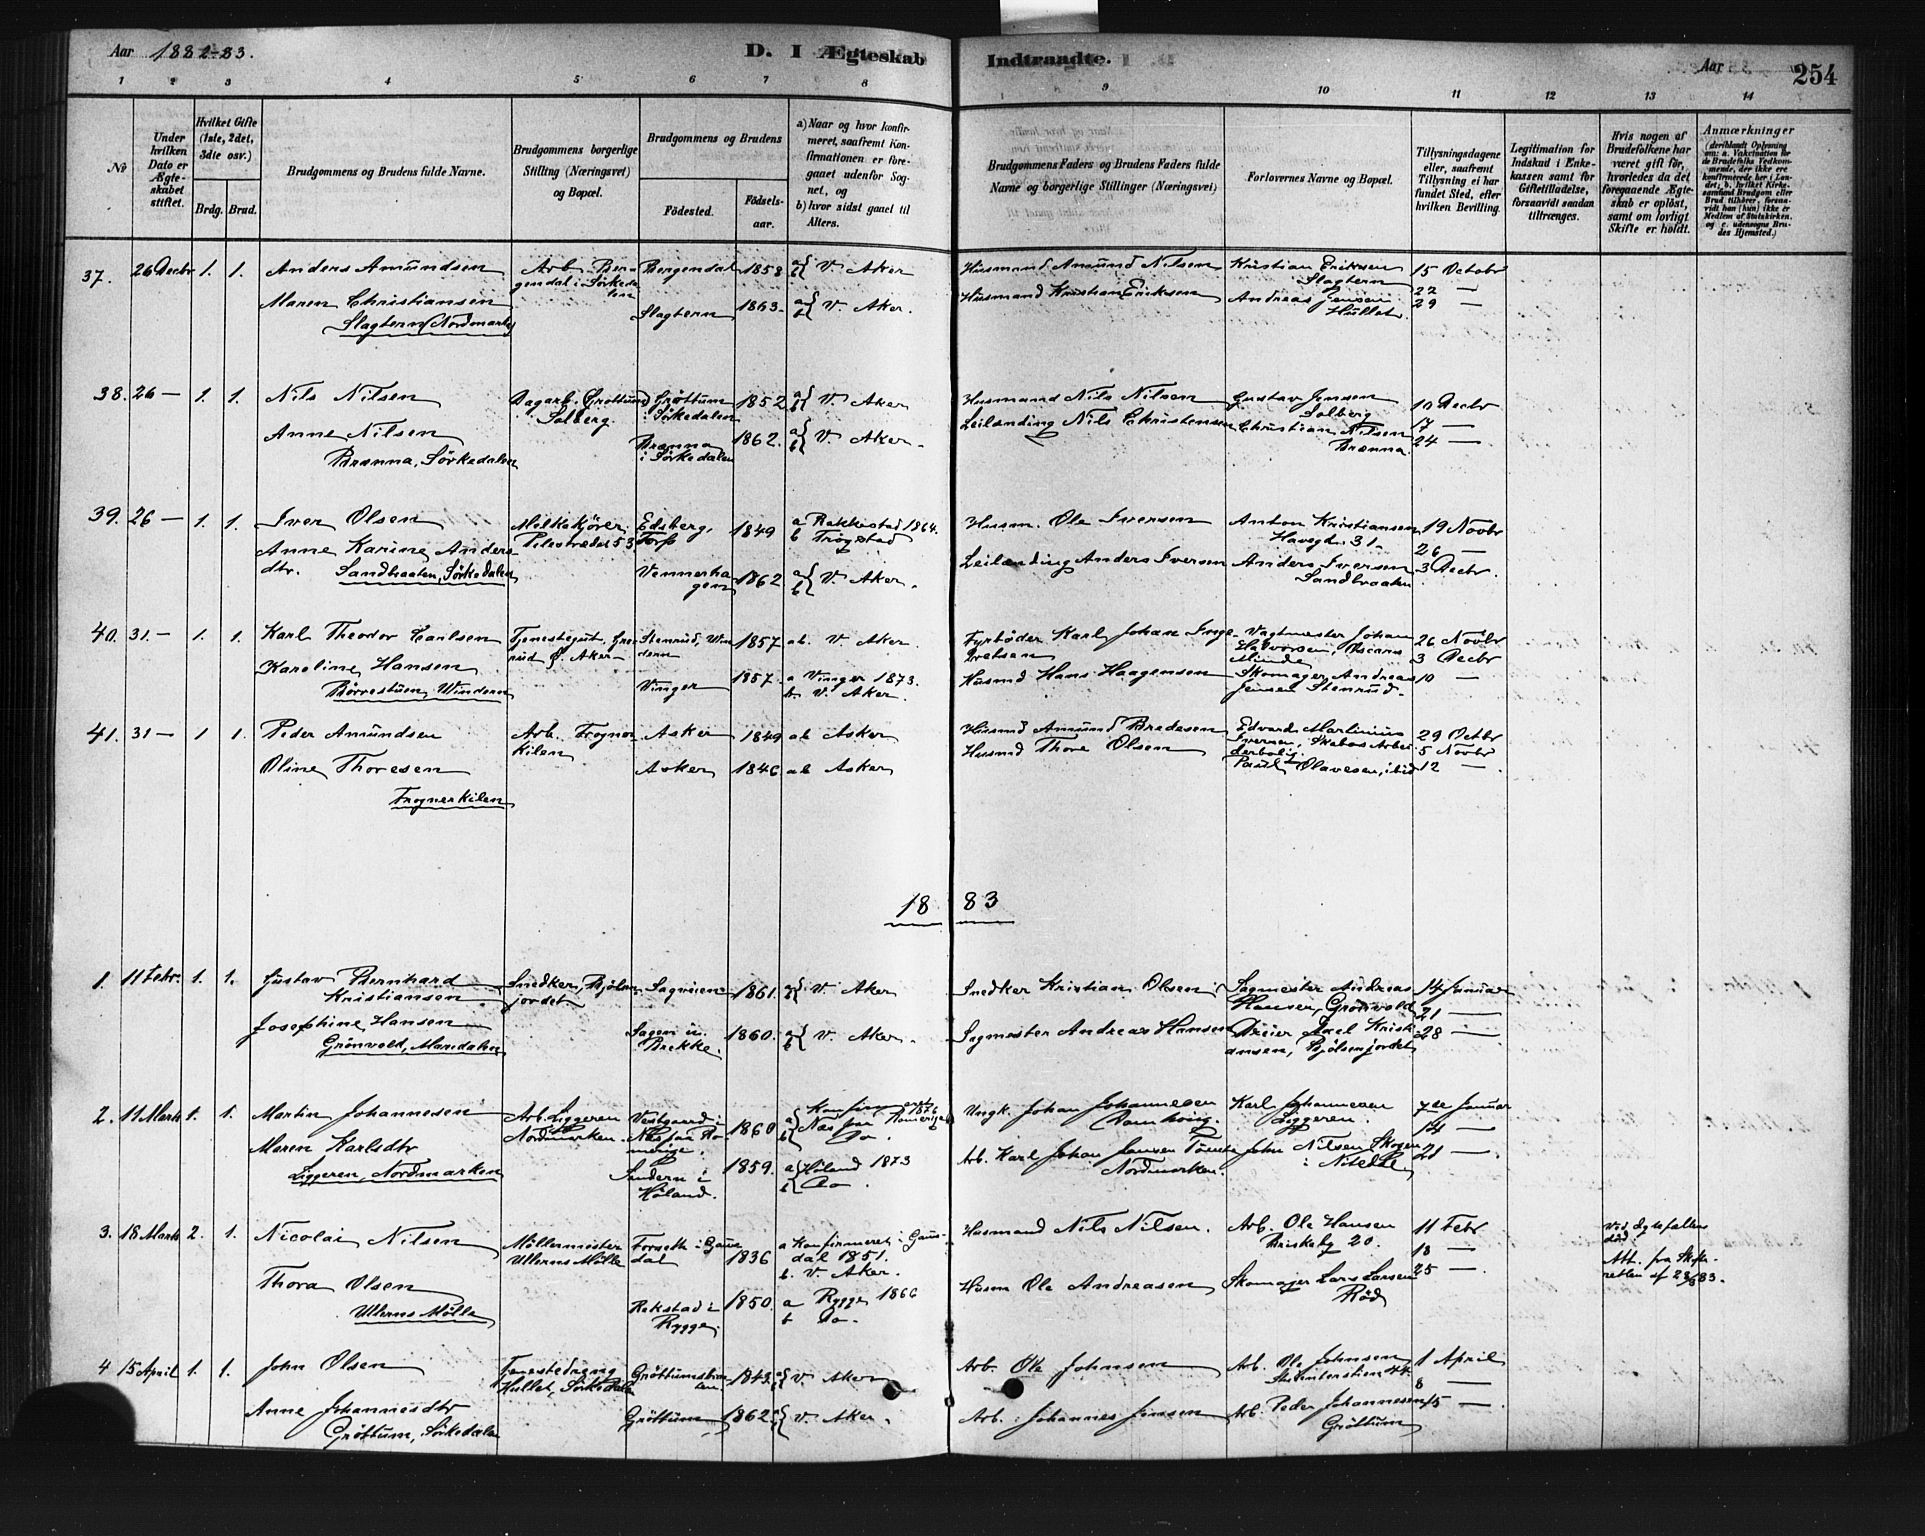 Aar 1882-83.
D. I Ægteskab Indtraadte.
Aar
254
1 2 3 4 5 6 7 8 9 10 11 12 13 14
No
Under hvilken Dato er Ægteskabet stiftet.
Hvilket Gifte (1ste, 2det, 3die osv.)
Brdg. Brud.
Brudgommens og Brudens fulde Navne.
Brudgommens borgerlige Stilling (Næringsvei) og Bopæl.
Brudgommens og Brudens
Fødested.
Fødselsaar.
a) Naar og hvor konfirmeret, saafremt Konfirmationen er foregaaet udenfor Sognet, og
b) hvor sidst gaaet til Alters.
Brudgommens Faders og Brudens Faders fulde Navne og borgerlige Stillinger (Næringsvei)
Forlovernes Navne og Bopæl.
Tillysningsdagene eller, saafremt Tillysning ei har fundet Sted, efter hvilken Bevilling.
Legitimation for Indskud i Enkekassen samt for Giftetilladelse, forsaavidt saadan tiltrænges.
Hvis nogen af Brudefolkene har været gift før, hvorledes da det foregaaende Ægteskab er opløst, samt om lovligt Skifte er holdt.
Anmærkninger
37. 26 Decbr 1. 1. Anders Amundsen
Arb. Bergendal i Sørkedalen
Bergendal 1858 a b } V. Aker
Husmand Amund Nilsen
Kristian Eriksen Slagtern
15 Octobr
Maren Christiansen
Slagtern Nordmarken
Slagtern 1863 a b } V. Aker.
Husmand Kristian Eriksen
Andreas Jensen Hullet
22 —
29 —
38. 26 — 1. 1. Nils Nilsen
Dagarb. Grøttum Solberg.
Grøttum Sørkedalen 1852 a b } V. Aker
Husmand Nils Nilsen
Gustav Jensen Solberg
10 Decbr
Anne Nilsen
Brænna, Sørkedalen
Brænna i Sørkedalen 1862. a b } V. Aker.
Leilænding Nils Christensen
Christian Nilsen Brænna
17 —
24 —
39. 26 — 1. 1. Iver Olsen
Melkekjører Pilestrædet 53
Edsberg, Torp 1849 a Rakkestad 1864. b Trøgstad
Husm. Ole Iversen
Anton Kristiansen Havegd. 31
19 Novbr
26 —
Anne Karine Andersdtr.
Sandbraaten, Sørkedalen
Vennerhagen 1862 a b } V. Aker.
Leilænding Anders Iversen
Anders Iversen Sandbraaten
3 Decbr.
40. 31. — 1. 1. Karl Theodor Carlsen
Tjenestegut,
Stenrud, Windern 1857 ab. V. Aker.
Fyrbøder Karl Johan
Vagtmester Johan Halvorsen, Oscars Minde
26 Novbr
3 Decbr
Karoline Hansen
Børrestuen, Windern
Vinger 1857. a Vinger 1873. b V. Aker.
Husmd Hans Haagensen
Skomager Andreas Jensen Stenrud.
10 —
41. 31 — 1 1. Peder Amundsen
Arb. Frognerkilen
Asker 1849 ab Asker
Husmd Amund Bredesen
Edvard Martinius Iversen, Skabos Arbeiderbolig
29 Octbr
5 Novbr
Oline Thoresen
Frognerkilen
Asker 1846 ab Asker
Husmd Thore Olsen
Paul Olavesen, ibid
12 —
18 83
1. 11 Febr. 1. 1. Gustav Bernhard Kristiansen
Snedker, Bjølsenjordet
Sagveien 1861. a b } V. Aker
Snedker Kristian Olsen
Sagmester Andreas Hansen, Grönvold
14 Januar
21 —
Josephine Hansen
Grönvold, Maridalen
Sagen u. Brekke. 1860. a b } V. Aker.
Sagmester Andreas Hansen
Dreier Axel Kristiansen, Bjølsenjordet
28 —
2. 11 Marts 1. 1. Martin Johannesen
Arb. Liggeren Nordmarken.
Vestgaard i Næs paa Romerige. 1860 a Konfirmeret 1876 Næs paa Romerige b Do.
Ungk. Johan Johannesen
Karl Johannesen Liggeren.
7de Januar
14 —
Maren Karlsdtr
Liggeren, Nordmarken
i Høland. 1859. a Høland 1873 b Do.
Arb. Karl Johan Jansen Tömte Nordmarken.
John Nilsen Skogen i Nitedal
21 —
3. 18 Marts 2. 1. Nicolai Nilsen
Møllermester Ullerns Mølle
Forseth i Gausdal 1836 a Konfirmeret i Gausdal 1851. b. V. Aker.
Husmand Nils Nilsen.
Arb. Ole Hansen Briskeby 20.
11 Febr
18 —
25 —
Ved Ægtefællens død.
Att. fra Skifteretten af 28/2 83.
Thora Olsen
Ullerns Mølle
Rokstad i Rygge. 1850. a Rygge 1866 b Do.
Husm Ole Andreasen
Skomager Lars Larsen Röd
4 15 April 1. 1. John Olsen
Tjenestedreng Hullet, Sørkedalen
1843. a b } V. Aker
Arb. Ole Johnsen
Arb. Ole Johnsen 44.
1 April
8 —
Anne Johannesdtr
Grøttum, Sørkedalen
Grøttum 1862 a b } V. Aker.
Arb. Johannes Jensen
Arb. Peder Johannesen Grøttum
15 —